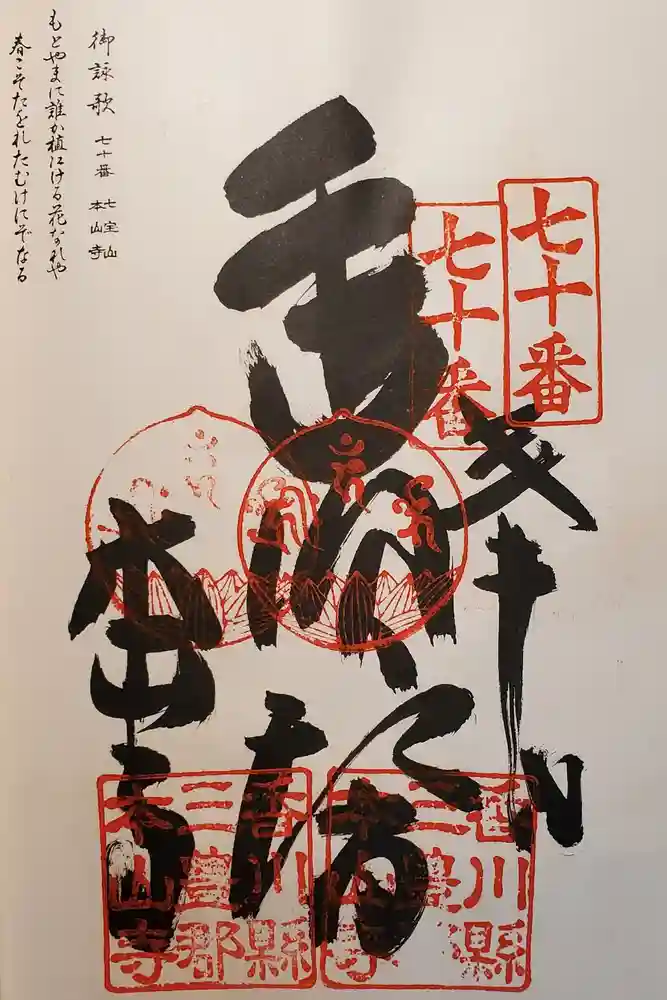 御詠歌 七十番 七宝山 本山寺
もとやまに誰か植ゑける花なれや
春こそたをれたむけにぞなる
七十番
七十番
奉
本山寺
香川縣
三豊郡
本山寺
香川縣
三豊郡
本山寺